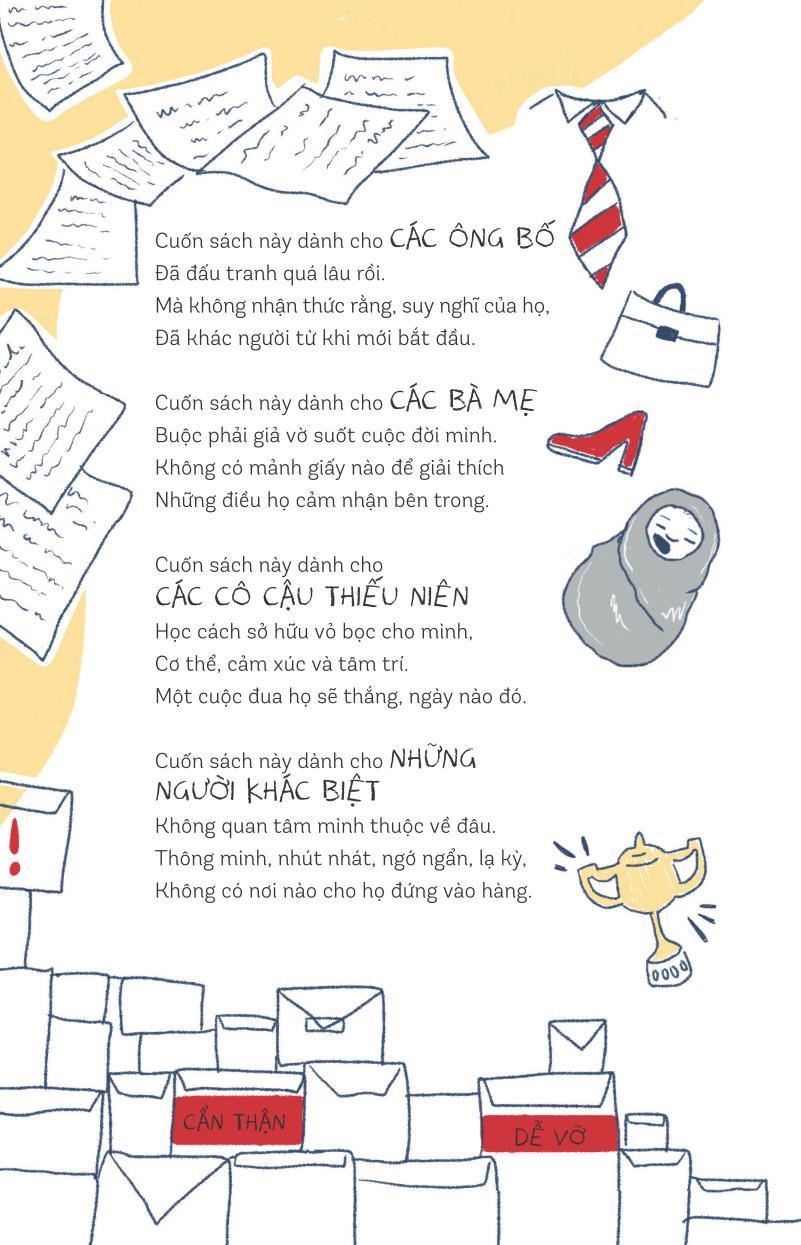 Cuốn sách này dành cho CÁC ÔNG BỐ
Đã đấu tranh quá lâu rồi.
Mà không nhận thức rằng, suy nghĩ của họ,
Đã khác người từ khi mới bắt đầu.
Cuốn sách này dành cho CÁC BÀ MẸ
Buộc phải giả vờ suốt cuộc đời mình.
Không có mảnh giấy nào để giải thích
Những điều họ cảm nhận bên trong.
Cuốn sách này dành cho
CÁC CÔ CẬU THIẾU NIÊN
Học cách sở hữu vỏ bọc cho mình,
Cơ thể, cảm xúc và tâm trí.
Một cuộc đua họ sẽ thắng, ngày nào đó.
Cuốn sách này dành cho NHỮNG
NGƯỜI KHÁC BIỆT
Không quan tâm mình thuộc về đâu.
Thông minh, nhút nhát, ngớ ngẩn, lạ kỳ,
Không có nơi nào cho họ đứng vào hàng.
!
CẨN THẬN
DỄ VỠ